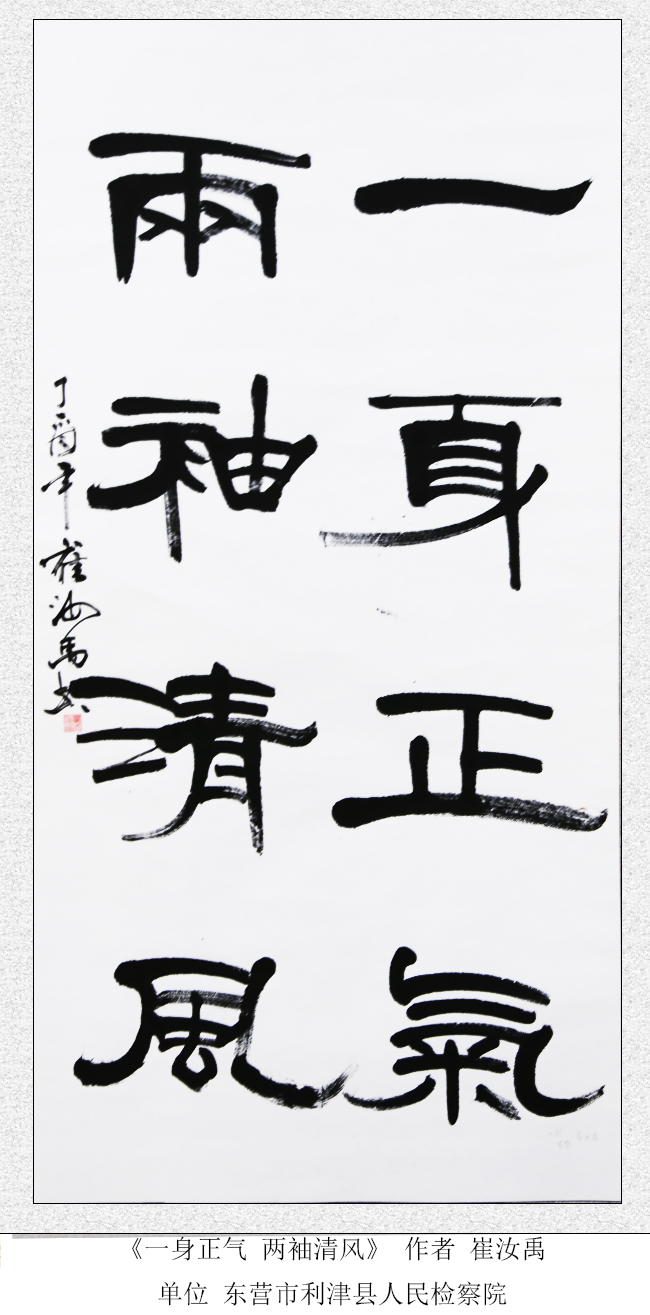 一身正氣
兩袖清風
丁酉年崔汝禹书
《一身正气 两袖清风》 作者 崔汝禹
单位 东营市利津县人民检察院